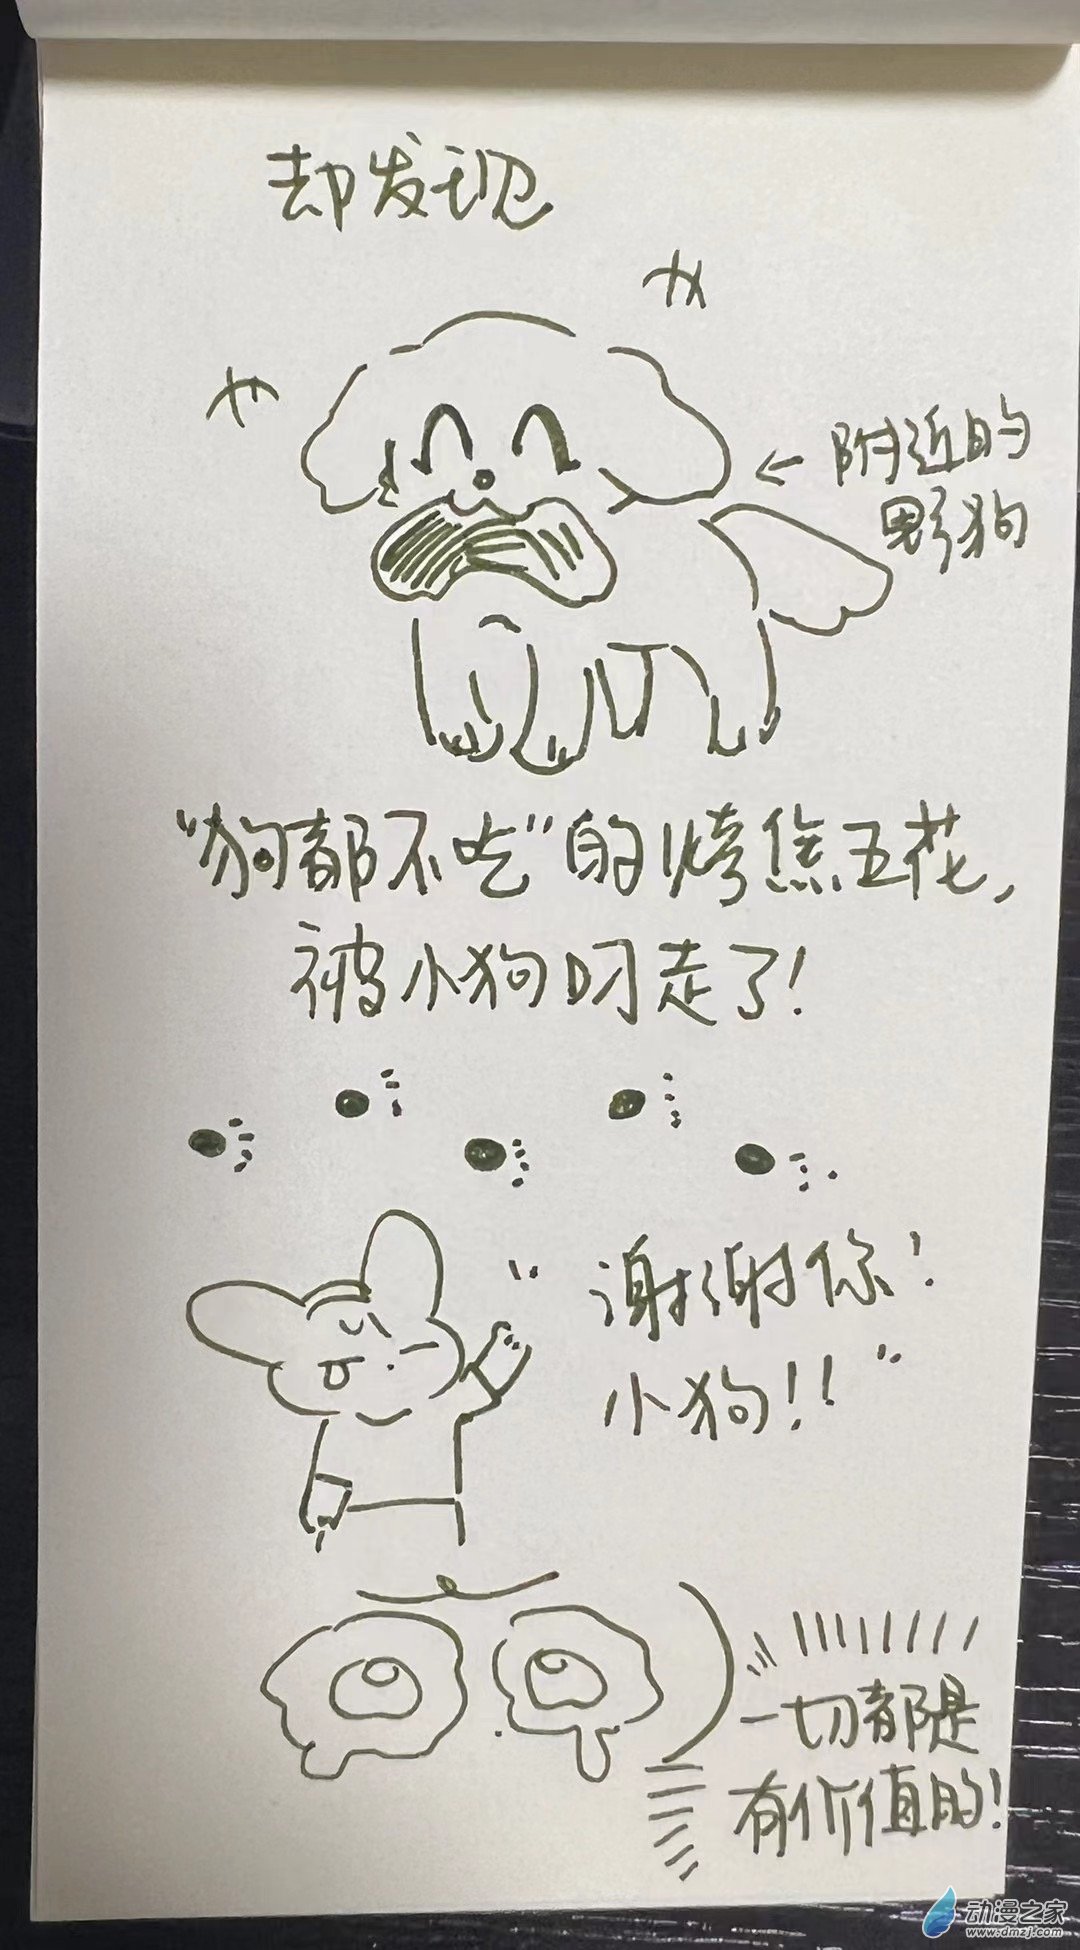 却发现
←附近的
野狗
"狗都不吃"的烤焦五花,
被小狗叼走了!
"谢谢你!
小狗!!"
一切都是
有价值的!
动漫之家
www.dmzj.com